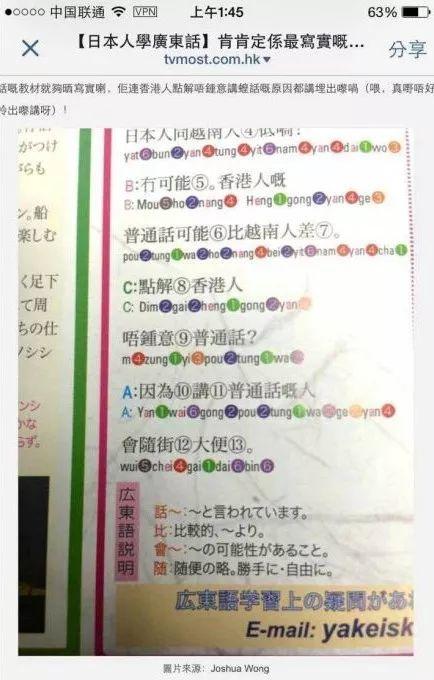 ●○○○○ 中国联通 VPN 上午1:45 63%
【日本人學廣東話】肯肯定係最寫實嘅...
tvmost.com.hk
分享
話嘅教材就夠晒寫實喇，佢連香港人點解唔鍾意講蝗話嘅原因都講埋出嚟喎（喂，真嘢唔好
出嚟講呀）！
がつけ
らも
ン。船
楽しむ
く足下
て周
ちの仕
ノシシ
ンシ
かな
らず。
日本人同越南人④低喎？
yat⑥bun②yan④tung④yit⑥nam④yan④dai①wo③
B:冇可能⑤。香港人嘅
B: Mou⑤ho②nang④ Heng①gong②yan④ge③
普通話可能⑥比越南人差⑦。
pou②tung①wa②ho②nang④bei②yit⑥nam④yan④cha①
C:點解⑧香港人
C: Dim②gai②heng①gong②yan④
唔鍾意⑨普通話？
m④zung①yi③pou②tung①wa②
A:因為⑩講⑪普通話嘅人
A: Yan①wai⑥gong②pou②tung①wa②ge③yan④
會隨街⑫大便⑬。
wui⑤chei④gai①dai⑥bin⑥
広東語説明
話～:～と言われています。
比:比較的、～より。
會～:～の可能性があること。
随:随便の略。勝手に・自由に。
広東語学習上の疑問があ
E-mail: yakeisk
圖片來源：Joshua Wong